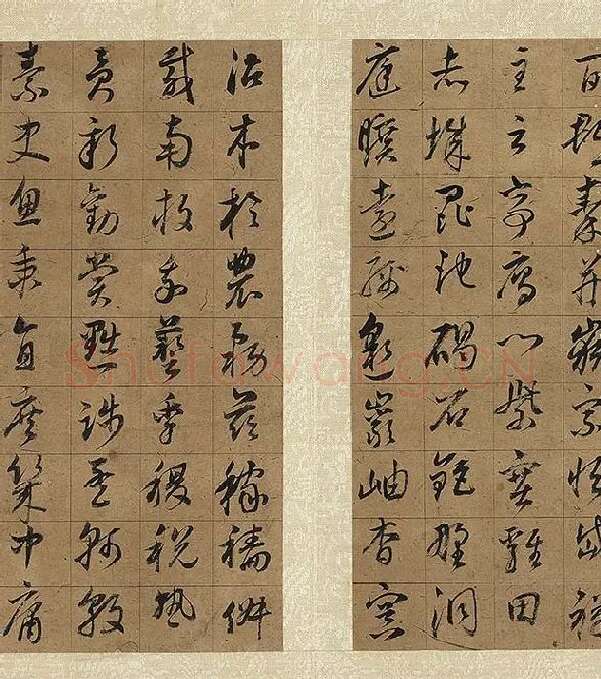 百郡秦并嶽宗恒岱禪
主云亭雁門紫塞雞田
赤城昆池碣石鉅野洞
庭曠遠綿邈巖岫杳冥
治本於農務茲稼穡俶
載南畝我藝黍稷稅熟
貢新勸賞黜陟孟軻敦
素史魚秉直庶幾中庸
Shufawang.CN